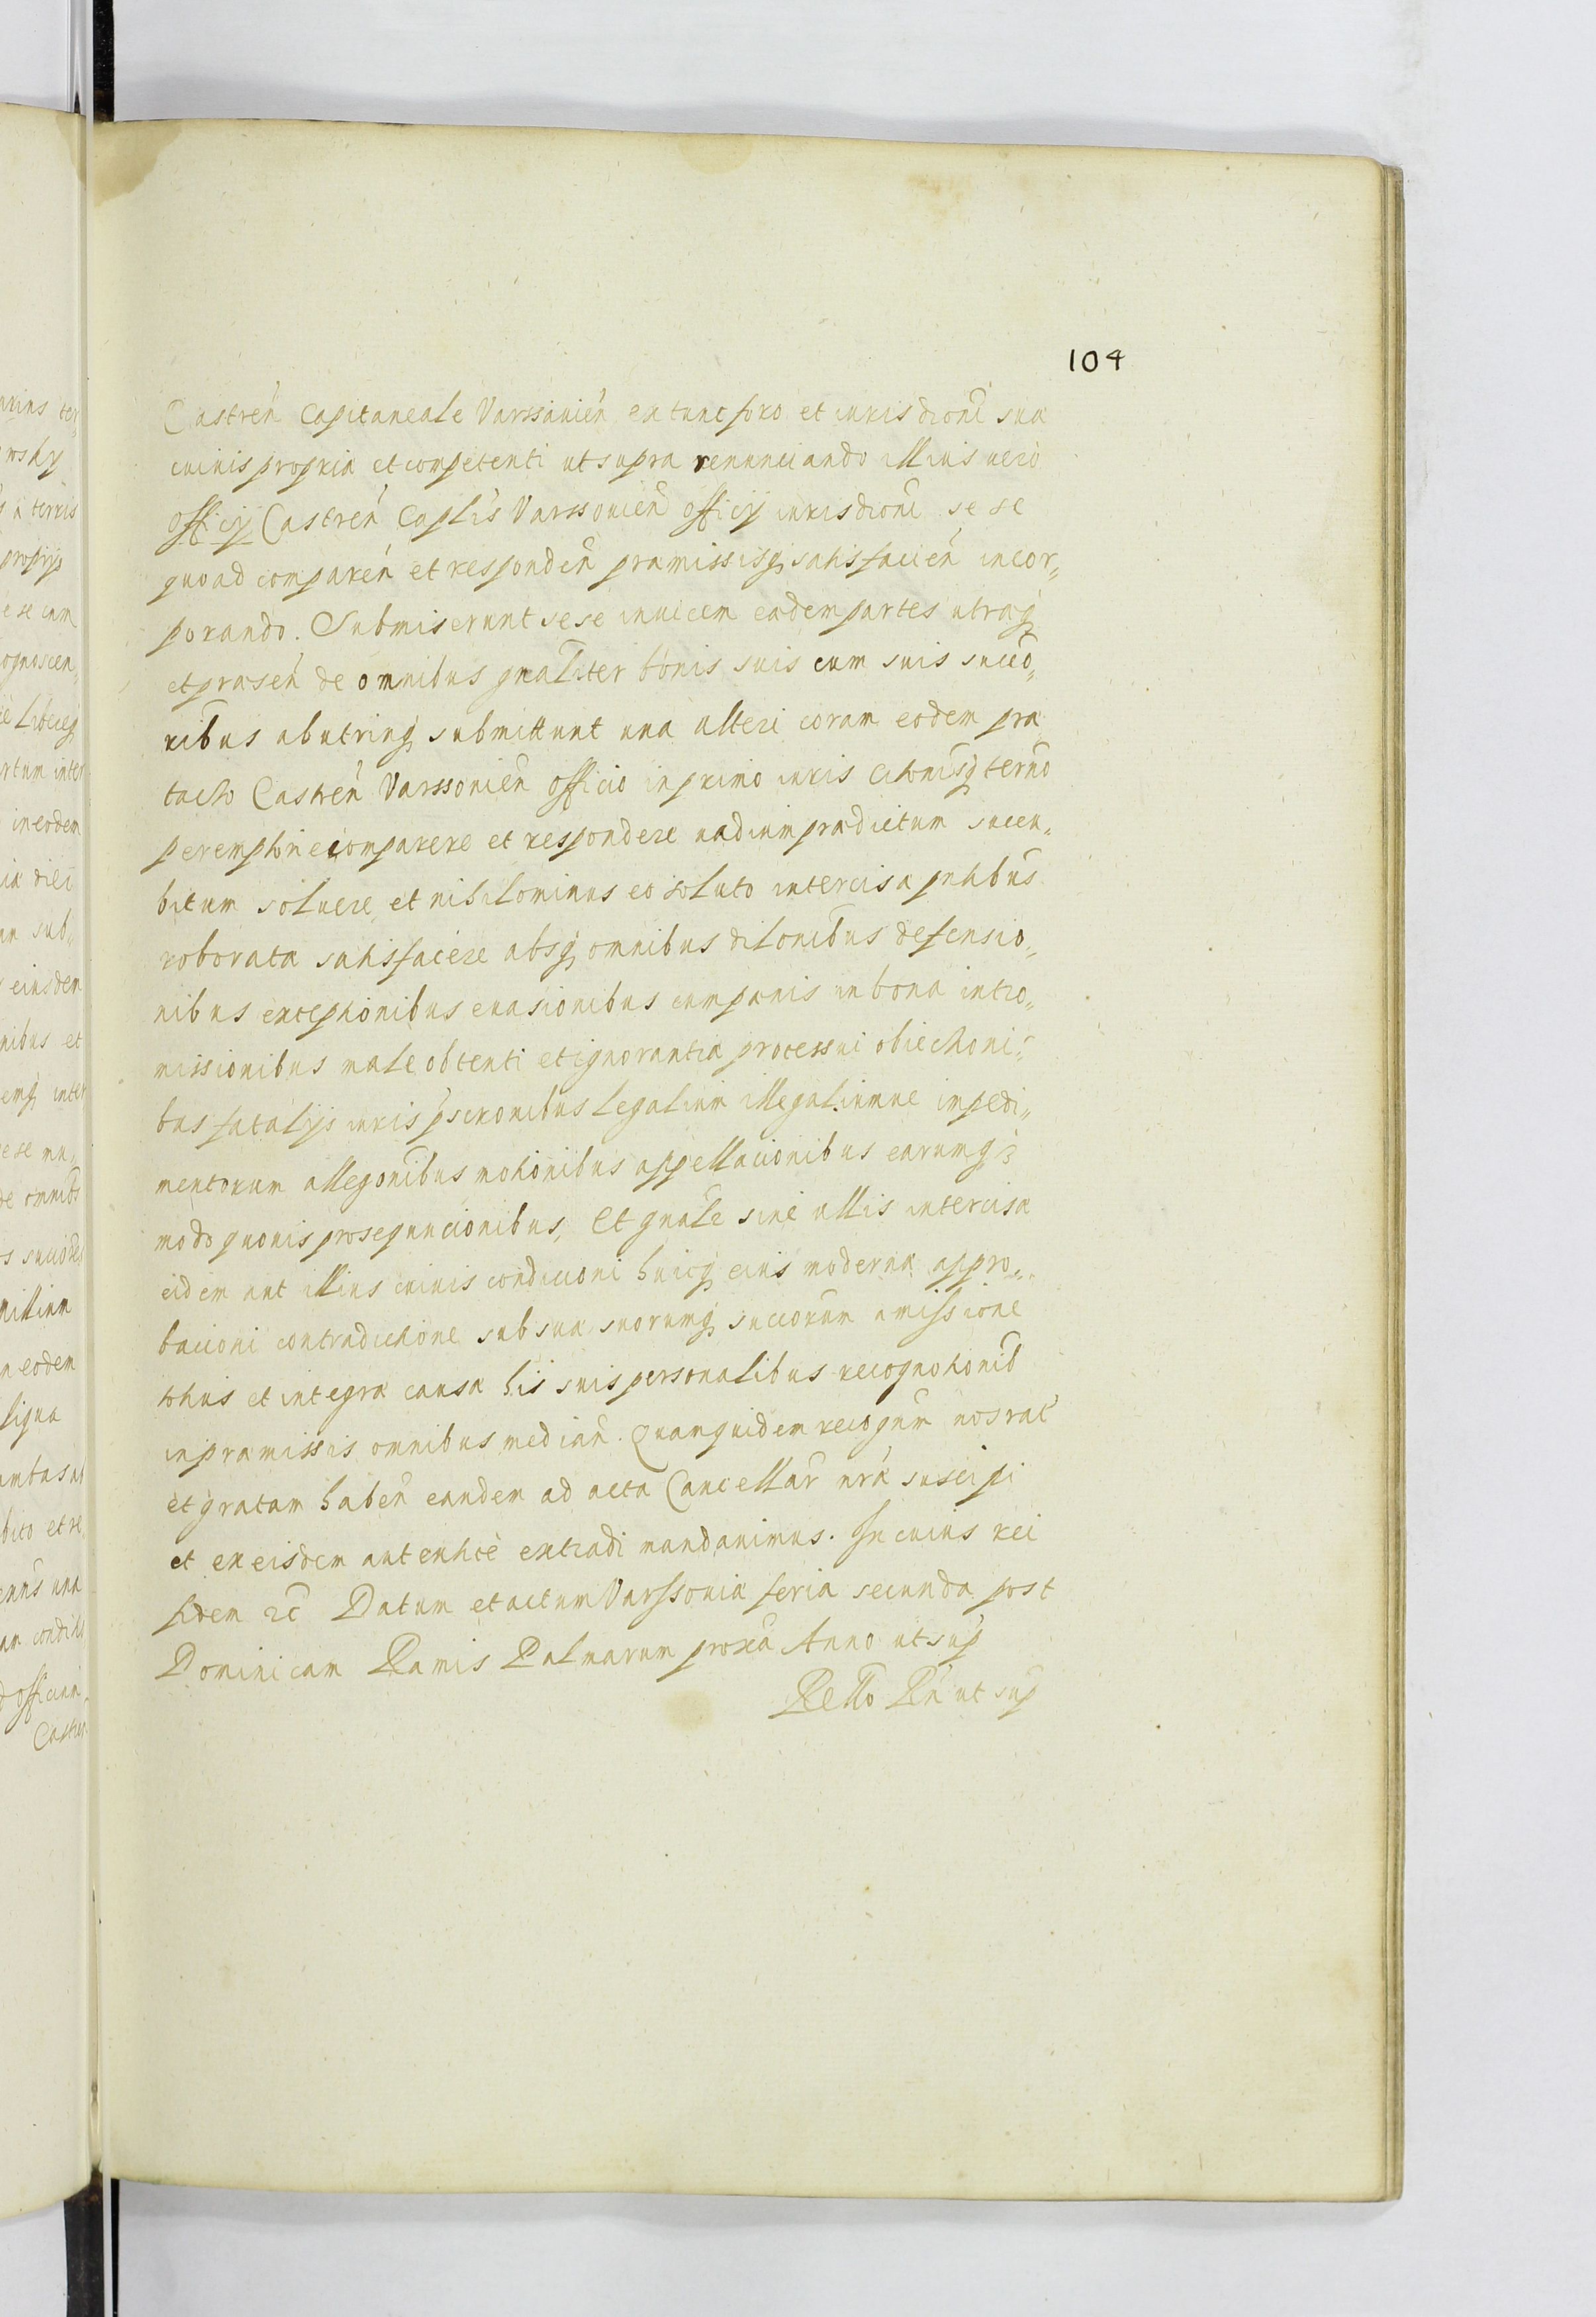 104
Castreñ Capitaneale Varssauieñ ex tunc foro et iurisdioni sua
cuiuis propria et competenti ut supra renunciando illius uero
officij Castreñ Capłis Varssouieñ officij iurisdioni se se
quoad compareñ et respondeñ pramissisq satisfacieñ incor„
porando. Submiserunt sese inuicem eadem partes utraq
et praseñ de omnibus gnaliter bonis suis cum suis succo„
ribus ab utrinq submittunt una alteri coram eodem pra
tacto Castreñ Varssouieñ officio in primo iuris citonisq termo
peremptorie comparere et respondere uadium pradictum succu„
bitum soluere, et nihilominus eo soluto intercisa pntibus
roborata satisfacere absq omnibus dilonibus defensio„
nibus exceptionibus euasionibus cumpanis in bona intro„
missionibus male obtenti et ignorantia processui obiectioni„
bus fatalijs iuris pscronibus legalium illegaliumue impedi„
mentorum allegonibus motionibus appellacionibus earumq3
modo quouis prosequucionibus, Et gnale sine ullis intercisa
eidem aut illius cuiuis condicioni huicq eius moderna appro„
bacioni contradictione sub sua suorumq succorum amissione
totius et integra causa his suis personalibus recognotionib
in pramissis omnibus mediañ. Quamquidem recognem nos rat
et gratam habeñ eandem ad acta Cancellar nra suscipi
et ex eisdem autentice extradi mandauimus. In cuius rei
fidem 2c Datum et actum Varssouia feria secunda post
Dominicam Ramis Palmarum proxa Anno ut sup
Retto Rn ut sup